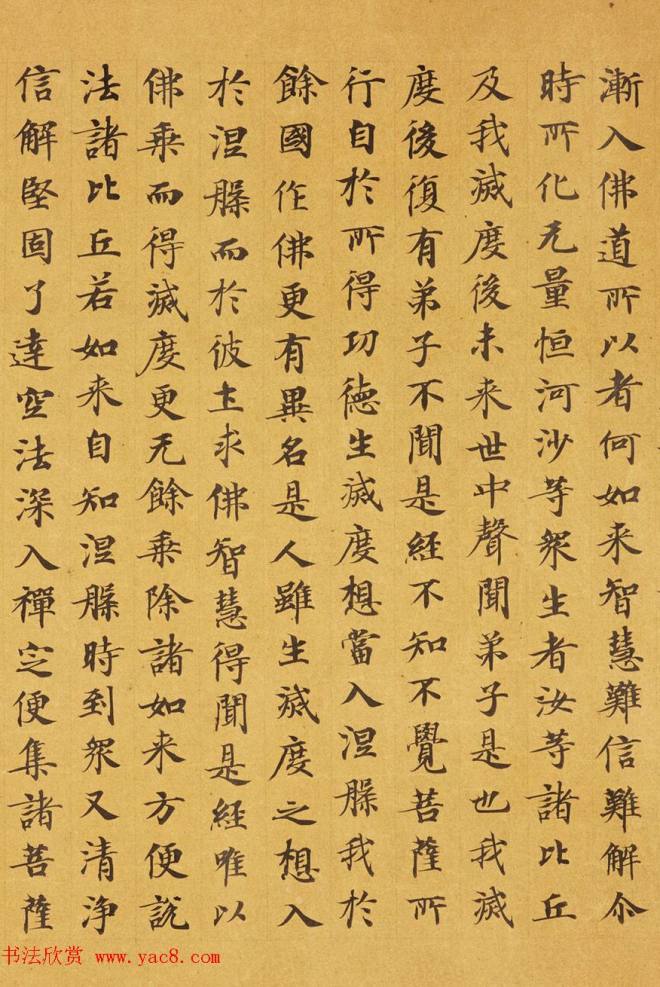 漸入佛道所以者何如来智慧難信難解尒
時所化无量恒河沙等衆生者汝等諸比丘
及我滅度後未来世中聲聞弟子是也我滅
度後復有弟子不聞是經不知不覺菩薩所
行自於所得功德生滅度想當入涅槃我於
餘國作佛更有異名是人雖生滅度之想入
於涅槃而於彼土求佛智慧得聞是經唯以
佛乗而得滅度更无餘乗除諸如来方便說
法諸比丘若如来自知涅槃時到衆又清淨
信解堅固了達空法深入禪定便集諸菩薩
书法欣赏 www.yac8.com